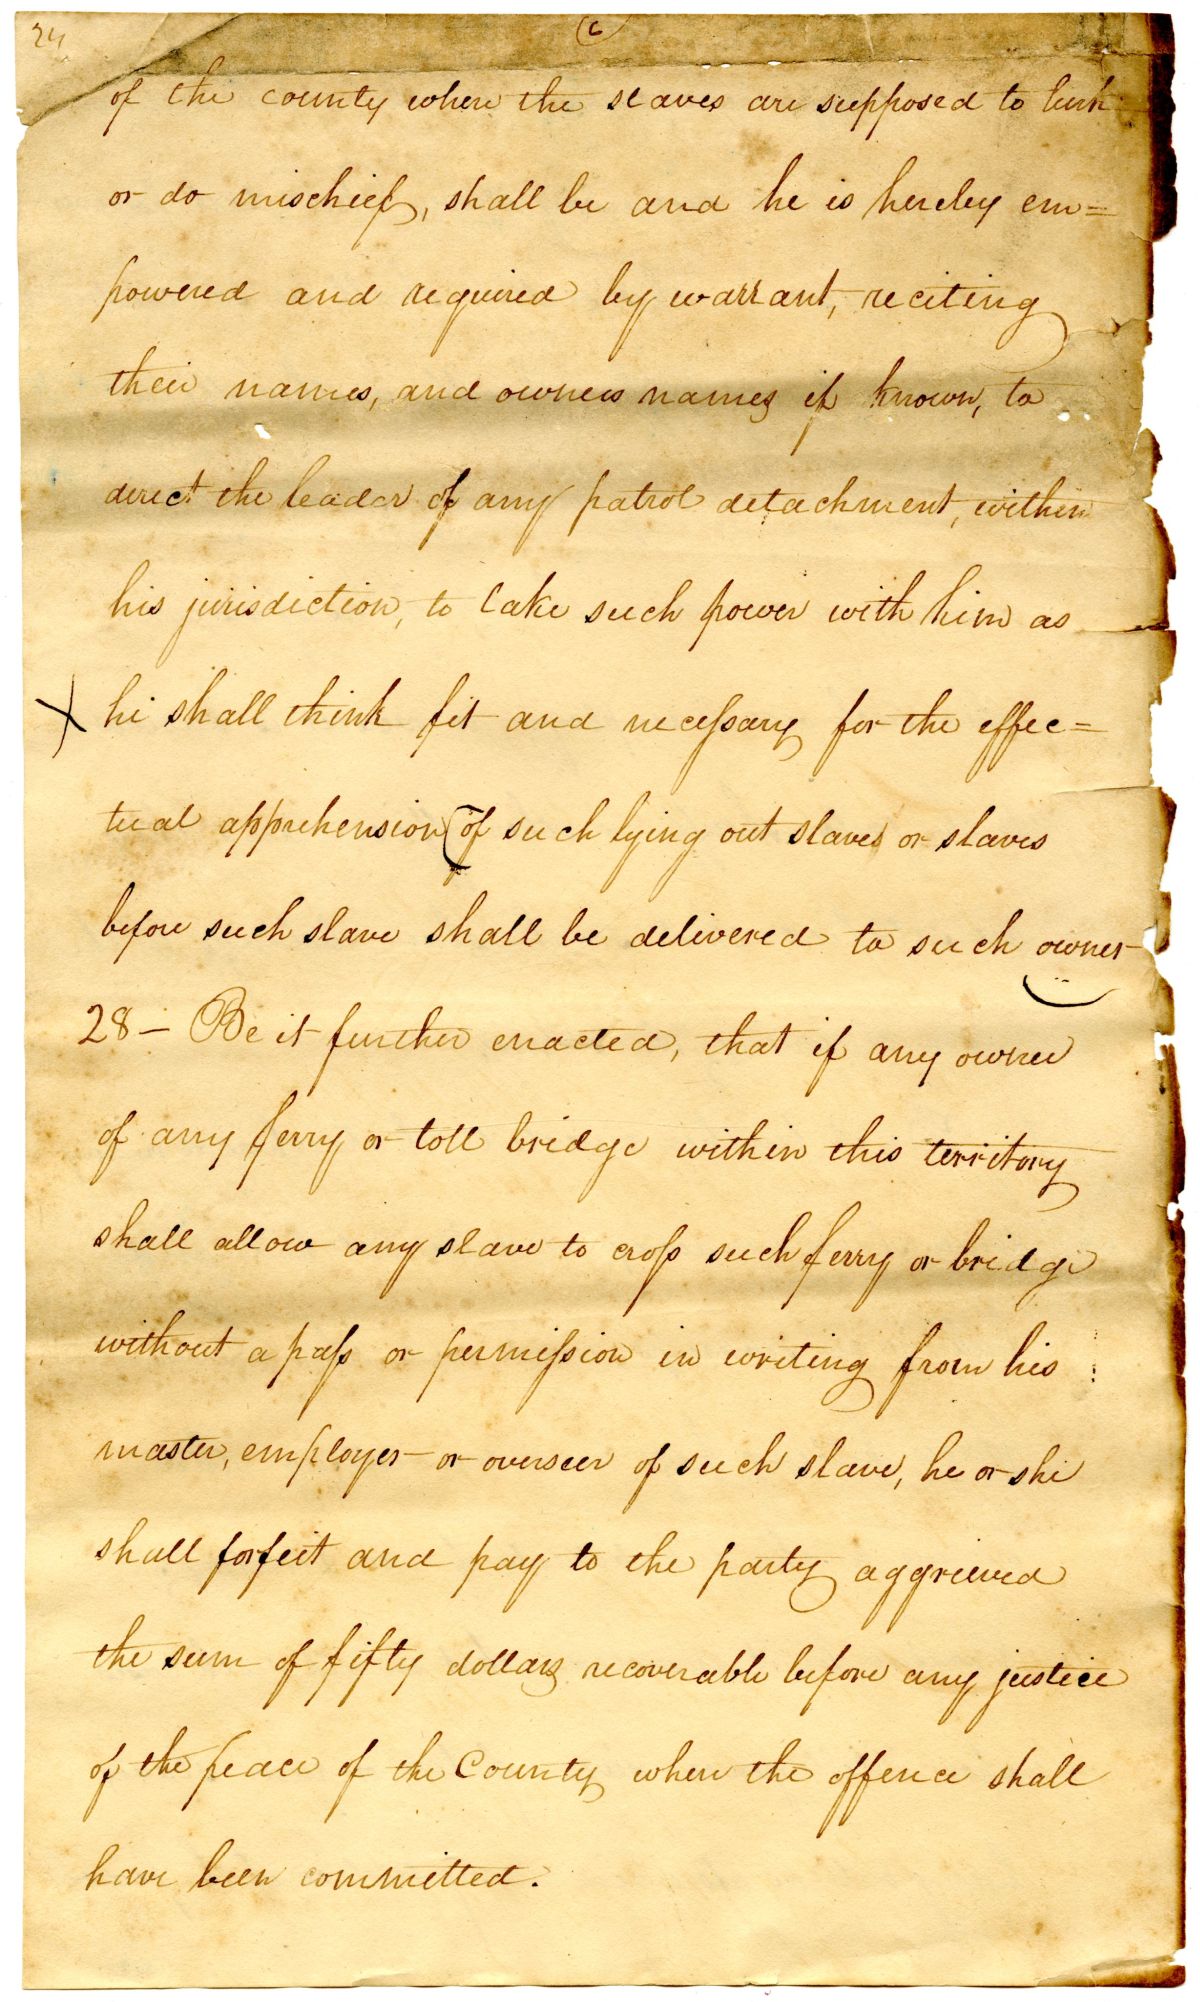 24
6
of the county where the slaves are supposed to lurk
or do mischief, shall be and he is hereby em=
powered and required by warrant, reciting
their names, and owners names if known, to
direct the leader of any patrol detachment, within
his jurisdiction, to take such power with him as
X he shall think fit and necessary for the effec=
tual apprehension (of such lying out slaves or slaves
before such slave shall be delivered to such owner
28 — Be it further enacted, that if any owner
of any ferry or toll bridge within this territory
shall allow any slave to cross such ferry or bridge
without a pass or permission in writing from his
master, employer or overseer of such slave, he or she
shall forfeit and pay to the party aggrieved
the sum of fifty dollars recoverable before any justice
of the peace of the County where the offence shall
have been committed.